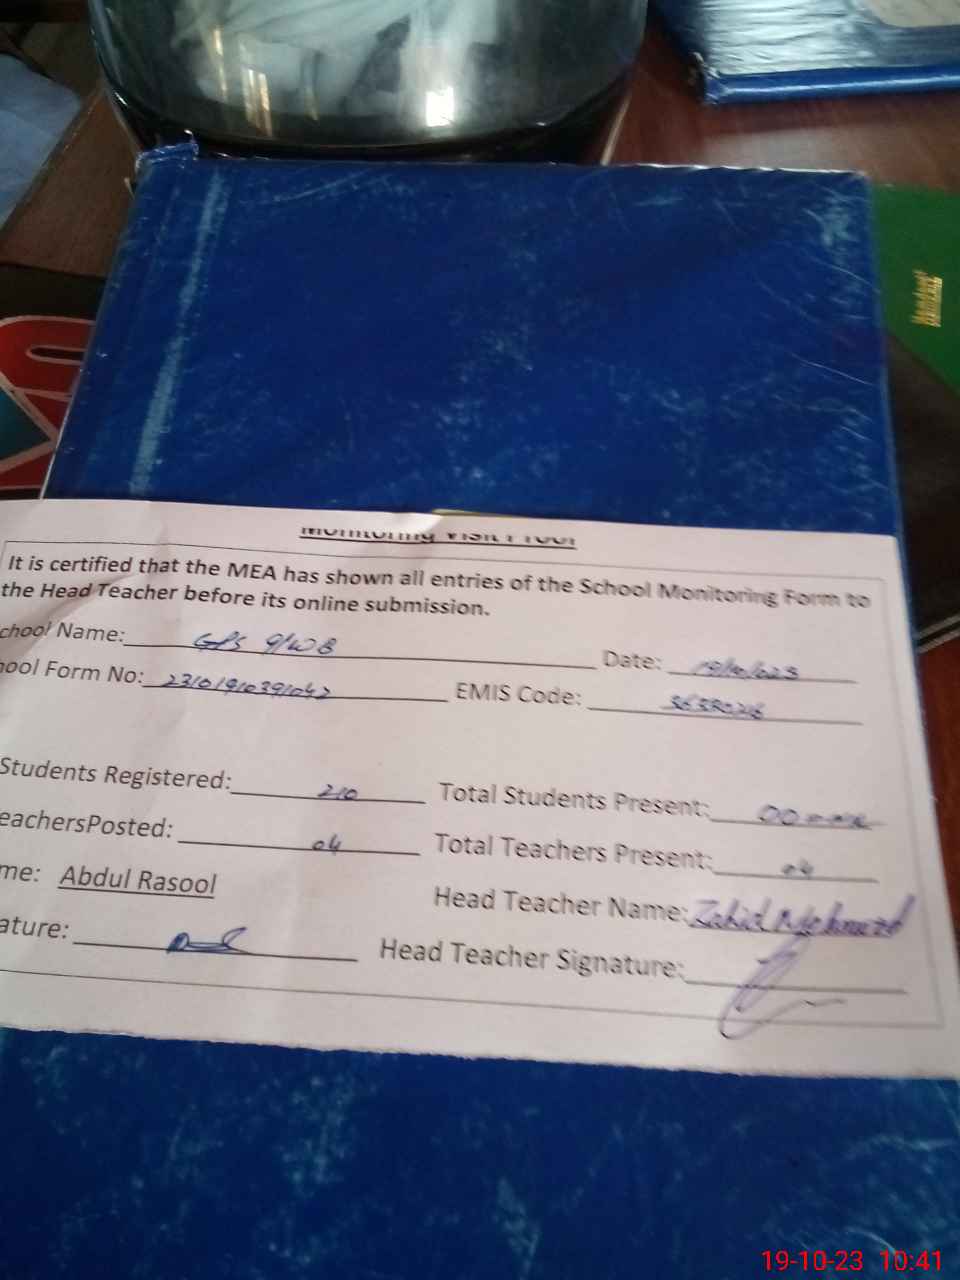 Monitoring Visit Proof
It is certified that the MEA has shown all entries of the School Monitoring Form to
the Head Teacher before its online submission.
chool Name: GPS 9/WB Date: 19/10/023
ool Form No: 23101910391042 EMIS Code:
Students Registered: 210 Total Students Present: 00
eachersPosted: 04 Total Teachers Present: 04
me: Abdul Rasool Head Teacher Name: Zahid Mehmood
ature: Head Teacher Signature:
19-10-23 10:41